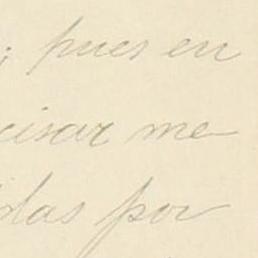 ; pues en
cisar me-
das por